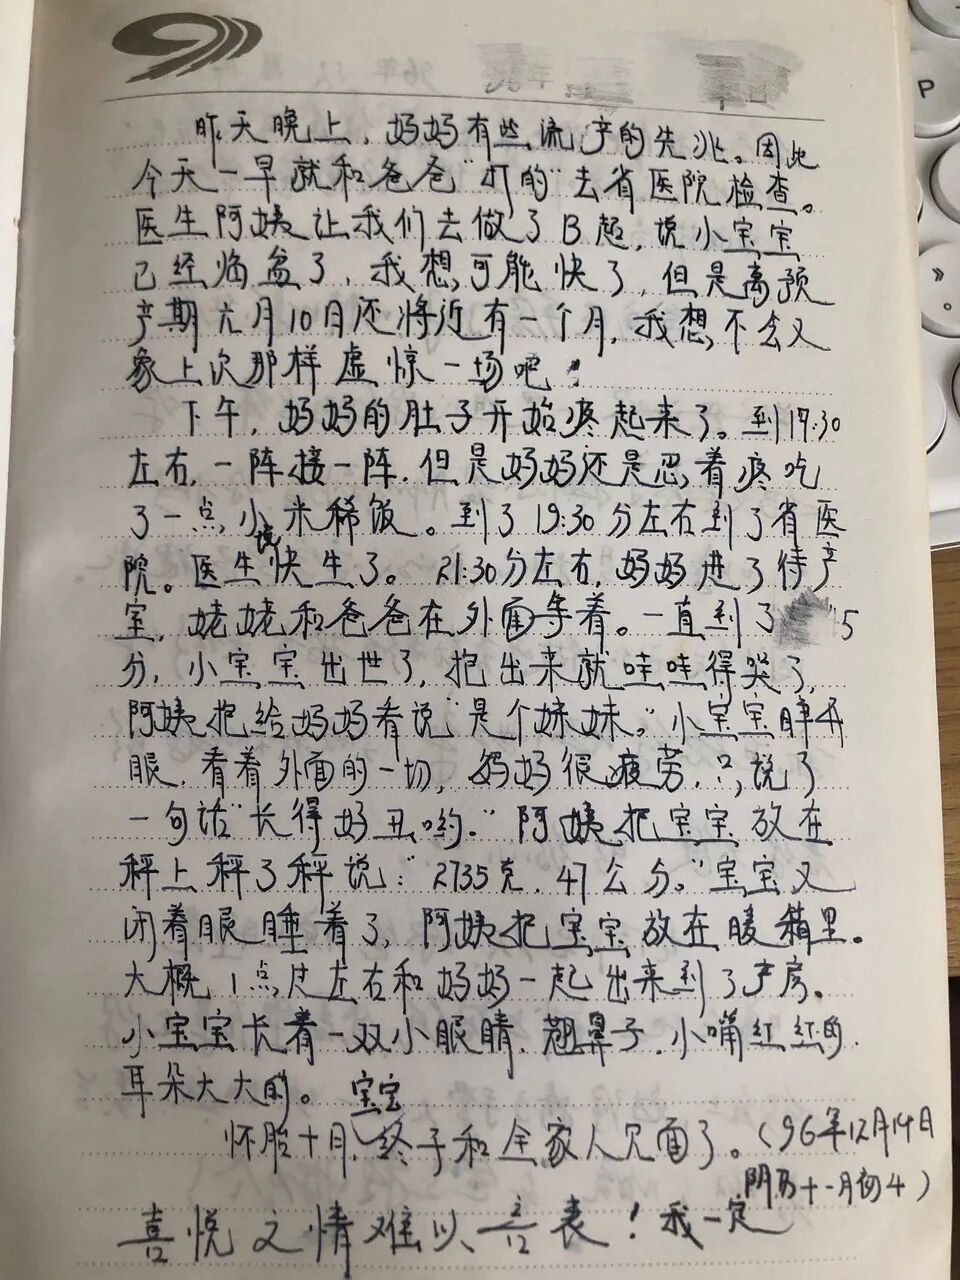 昨天晚上，妈妈有些流产的先兆。因此
今天一早就和爸爸"打的"去省医院检查。
医生阿姨让我们去做了B超，说小宝宝
已经临盆了，我想，可能快了，但是离预
产期元月10日还将近有一个月，我想，不会又
象上次那样虚惊一场吧！
下午，妈妈的肚子开始疼起来了。到17:30
左右，一阵接一阵，但是妈妈还是忍着疼吃
了一点小米稀饭。到了19:30分左右到了省医
院。医生说快生了。21:30分左右，妈妈进了待产
室，姥姥和爸爸在外面等着。一直到了 15
分，小宝宝出世了，抱出来就哇哇得哭了，
阿姨抱给妈妈看说"是个妹妹。"小宝宝睁开
眼，看着外面的一切，妈妈很疲劳，只说了
一句话"长得好丑哟。"阿姨把宝宝放在
秤上秤了秤说："2735克，47公分。"宝宝又
闭着眼睡着了，阿姨把宝宝放在暖箱里。
大概1点左右和妈妈一起出来到了产房。
小宝宝长着一双小眼睛，翘鼻子，小嘴红红的，
耳朵大大的。
怀胎十月，宝宝终于和全家人见面了。（96年12月14日
阴历十一月初4）
喜悦之情难以言表！我一定